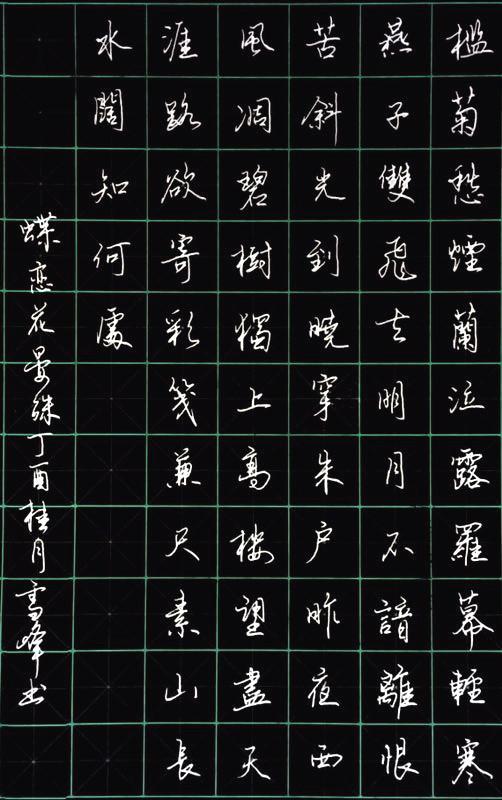 檻菊愁煙蘭泣露羅幕輕寒
燕子雙飛去明月不諳離恨
苦斜光到曉穿朱戶昨夜西
風凋碧樹獨上高樓望盡天
涯路欲寄彩箋兼尺素山長
水闊知何處
蝶恋花晏殊丁酉桂月雪峰书